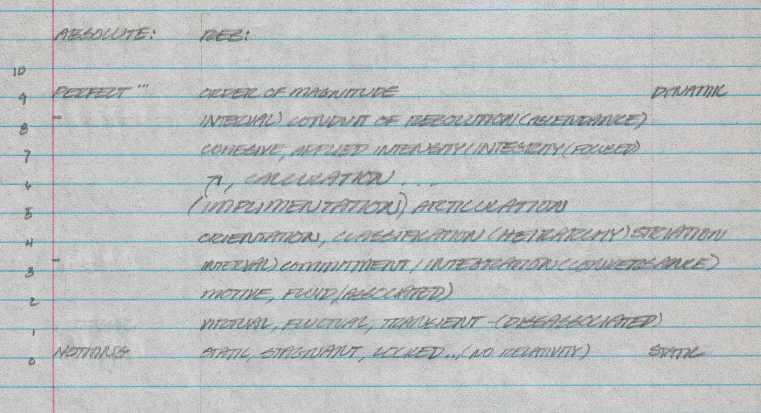 ABSOLUTE: REB:
10
9 PERFECT ''' ORDER OF MAGNITUDE DYNAMIC
8 INTERVAL) CONDUIT OF RESOLUTION (ASCENDANCE)
7 COHESIVE, APPLIED INTENSITY/INTEGRITY (FOCUSED)
6 CALCULATION ...
5 (IMPLIMENTATION) ARTICULATION
4 ORIENTATION, CLASSIFICATION (HEIRARCHY) STRIATION
3 INTERVAL) COMMITMENT / INTEGRATION
2 MOTIVE, FLUID/ASSOCIATED)
1 VIRTUAL, FLUCTUAL, TRANCIENT - (DISSASSOCIATED)
0 NOTHING STATIC, STAGNANT, LOCKED... (NO RELATIVITY) STATIC